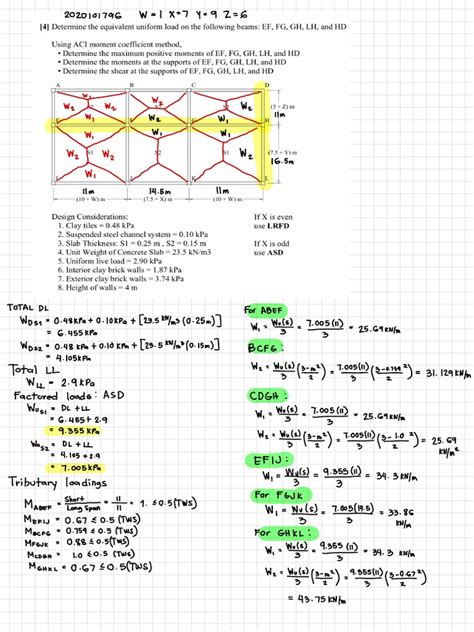 2020101796 W=1 X=7 Y=9 Z=6
[4] Determine the equivalent uniform load on the following beams: EF, FG, GH, LH, and HD
Using ACI moment coefficient method,
• Determine the maximum positive moments of EF, FG, GH, LH, and HD
• Determine the moments at the supports of EF, FG, GH, LH, and HD
• Determine the shear at the supports of EF, FG, GH, LH, and HD
A B C D
W2 W2 W1 W2
(5 + Z) m
11m
W1 W1 W1
E H
W1 W1 W1
W2 S1 W2 S2 S1 W2
(7.5 + Y) m
16.5m
W1
I J K L
11m 14.5m 11m
(10 + W) m (7.5 + X) m (10 + W) m
Design Considerations:
1. Clay tiles = 0.48 kPa
2. Suspended steel channel system = 0.10 kPa
3. Slab Thickness: S1 = 0.25 m , S2 = 0.15 m
4. Unit Weight of Concrete Slab = 23.5 kN/m3
5. Uniform live load = 2.90 kPa
6. Interior clay brick walls = 1.87 kPa
7. Exterior clay brick walls = 3.74 kPa
8. Height of walls = 4 m
If X is even
use LRFD
If X is odd
use ASD
TOTAL DL
WDS1 = 0.48kPa + 0.10kPa + [23.5 kN/m³ (0.25m)]
= 6.455 kPa
WDS2 = 0.48 kPa + 0.10 kPa + [23.5 kN/m³ (0.15m)]
= 4.105kPa
Total LL
WLL = 2.9kPa
Factored loads: ASD
WUS1 = DL + LL
= 6.455 + 2.9
= 9.355 kPa
WUS2 = DL + LL
= 4.105 + 2.9
= 7.005kPa
Tributary loadings
MABEF = Short / Long Span = 11 / 11 = 1. ≤ 0.5 (TWS)
MEFIJ = 0.67 ≤ 0.5 (TWS)
MBCFG = 0.759 ≤ 0.5 (TWS)
MFGJK = 0.88 ≤ 0.5 (TWS)
MCDGH = 1.0 ≤ 0.5 (TWS)
MGHKL = 0.67 ≤ 0.5 (TWS)
For ABEF
W1 = Wu(s) / 3 = 7.005 (11) / 3 = 25.69 kN/m
BCFG:
W2 = Wu(s) / 3 (3-m² / 2) = 7.005(11) / 3 (3-0.759² / 2) = 31.129 kN/m
CDGH:
W1 = Wu(s) / 3 = 7.005 (11) / 3 = 25.69 kN/m
W2 = Wu(s) / 3 (3-m² / 2) = 7.005(11) / 3 (3-1.0² / 2) = 25.69 kN/m²
EFIJ:
W1 = Wu(s) / 3 = 9.355 (11) / 3 = 34.3 kN/m
For FGJK
W1 = Wu(s) / 3 = 7.005 (14.5) / 3 = 33.86 kN/m
For GHKL:
W1 = Wu(s) / 3 = 9.355 (11) / 3 = 34.3 kN/m
W2 = Wu(s) / 3 (3-m² / 2) = 9.355(11) / 3 (3-0.67² / 2)
= 43.75 kN/m